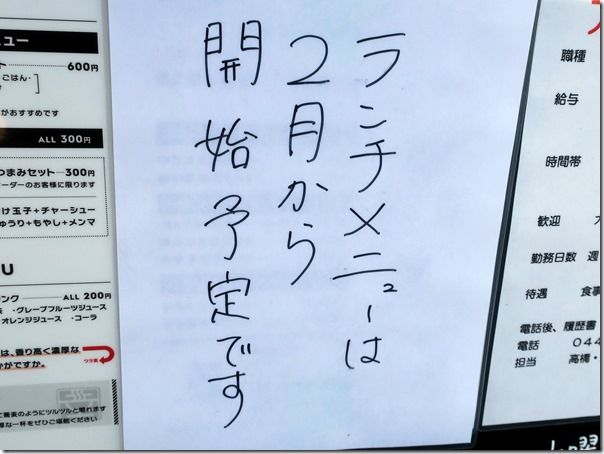 ランチメニューは
2月から
開始予定です
ュー
600円
ごはん・
がおすすめです
ALL 300円
つまみセット 300円
ーダーのお客様に限ります
け玉子+チャーシュー
ゅうり+もやし+メンマ
U
ンク ALL 200円
・グレープフルーツジュース
オレンジジュース ・コーラ
は、香り高く濃厚な
かがですか。
て蕎麦のようにツルツルと喰れます
厚な一杯をぜひご堪能ください
職種
給与
時間帯
歓迎
勤務日数 週
待遇 食事
電話後、履歴書
電話 044
担当 高橋・